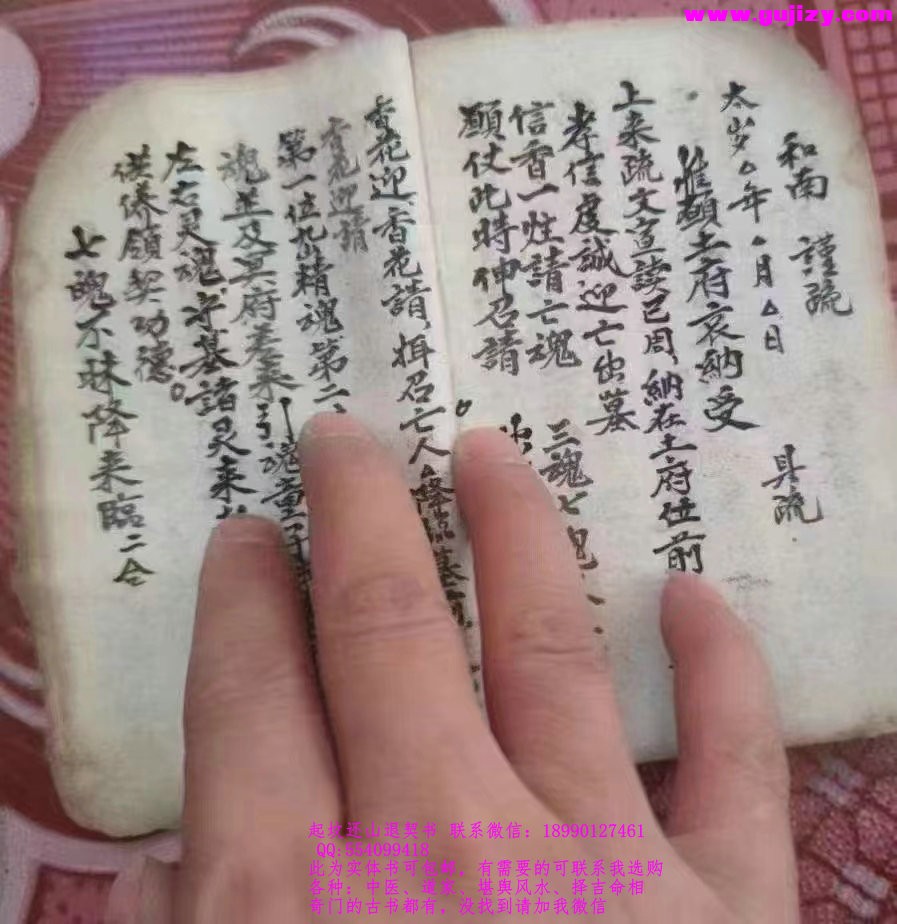 www.gujizy.com
和南 謹疏
太岁△年△月△日 具疏
惟願土府哀納受
上来疏文宣读已周,納在土府位前
孝信虔誠迎亡出墓
信香一炷請亡魂 三魂七魄
願仗此時伸召請
香花迎,香花請,揖召亡人△降臨墓前
香花迎請
第一位 精魂第二
魂並及冥府墓来引魂童子
左右灵魂守墓諸灵来
供养領契功德。
七魄不昧降来臨二合
起坟迁山退契书 联系微信:18990127461
QQ:554099418
此为实体书可包邮,有需要的可联系我选购
各种:中医、道家、堪舆风水、择吉命相
奇门的古书都有,没找到请加我微信